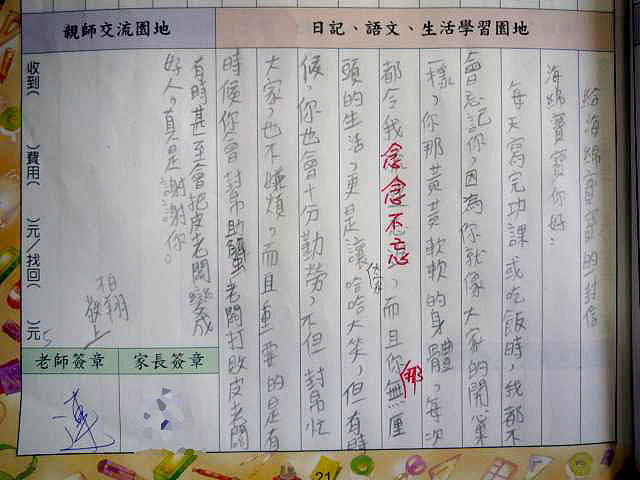 親師交流園地
日記、語文、生活學習園地
給海綿寶寶的一封信
海綿寶寶你好:
每天寫完功課或吃飯時,我都不
會忘記你,因為你就像大家的開菓
一樣,你那黃黃軟軟的身體,每次
都令我念念不忘,而且你那無厘
頭的生活,更是讓你哈哈大笑,但有時
候,你也會十分勤勞,不但封帮忙
大家,也不嫌煩,而且重要的是有
時候你會封帮助蟹老闆打敗皮老闆
有時甚至會把皮老闆變成
好人。真是謝謝你。
柏翔
敬上
收到( )費用( )元/找回( )元
5
老師簽章
家長簽章
蓮
21